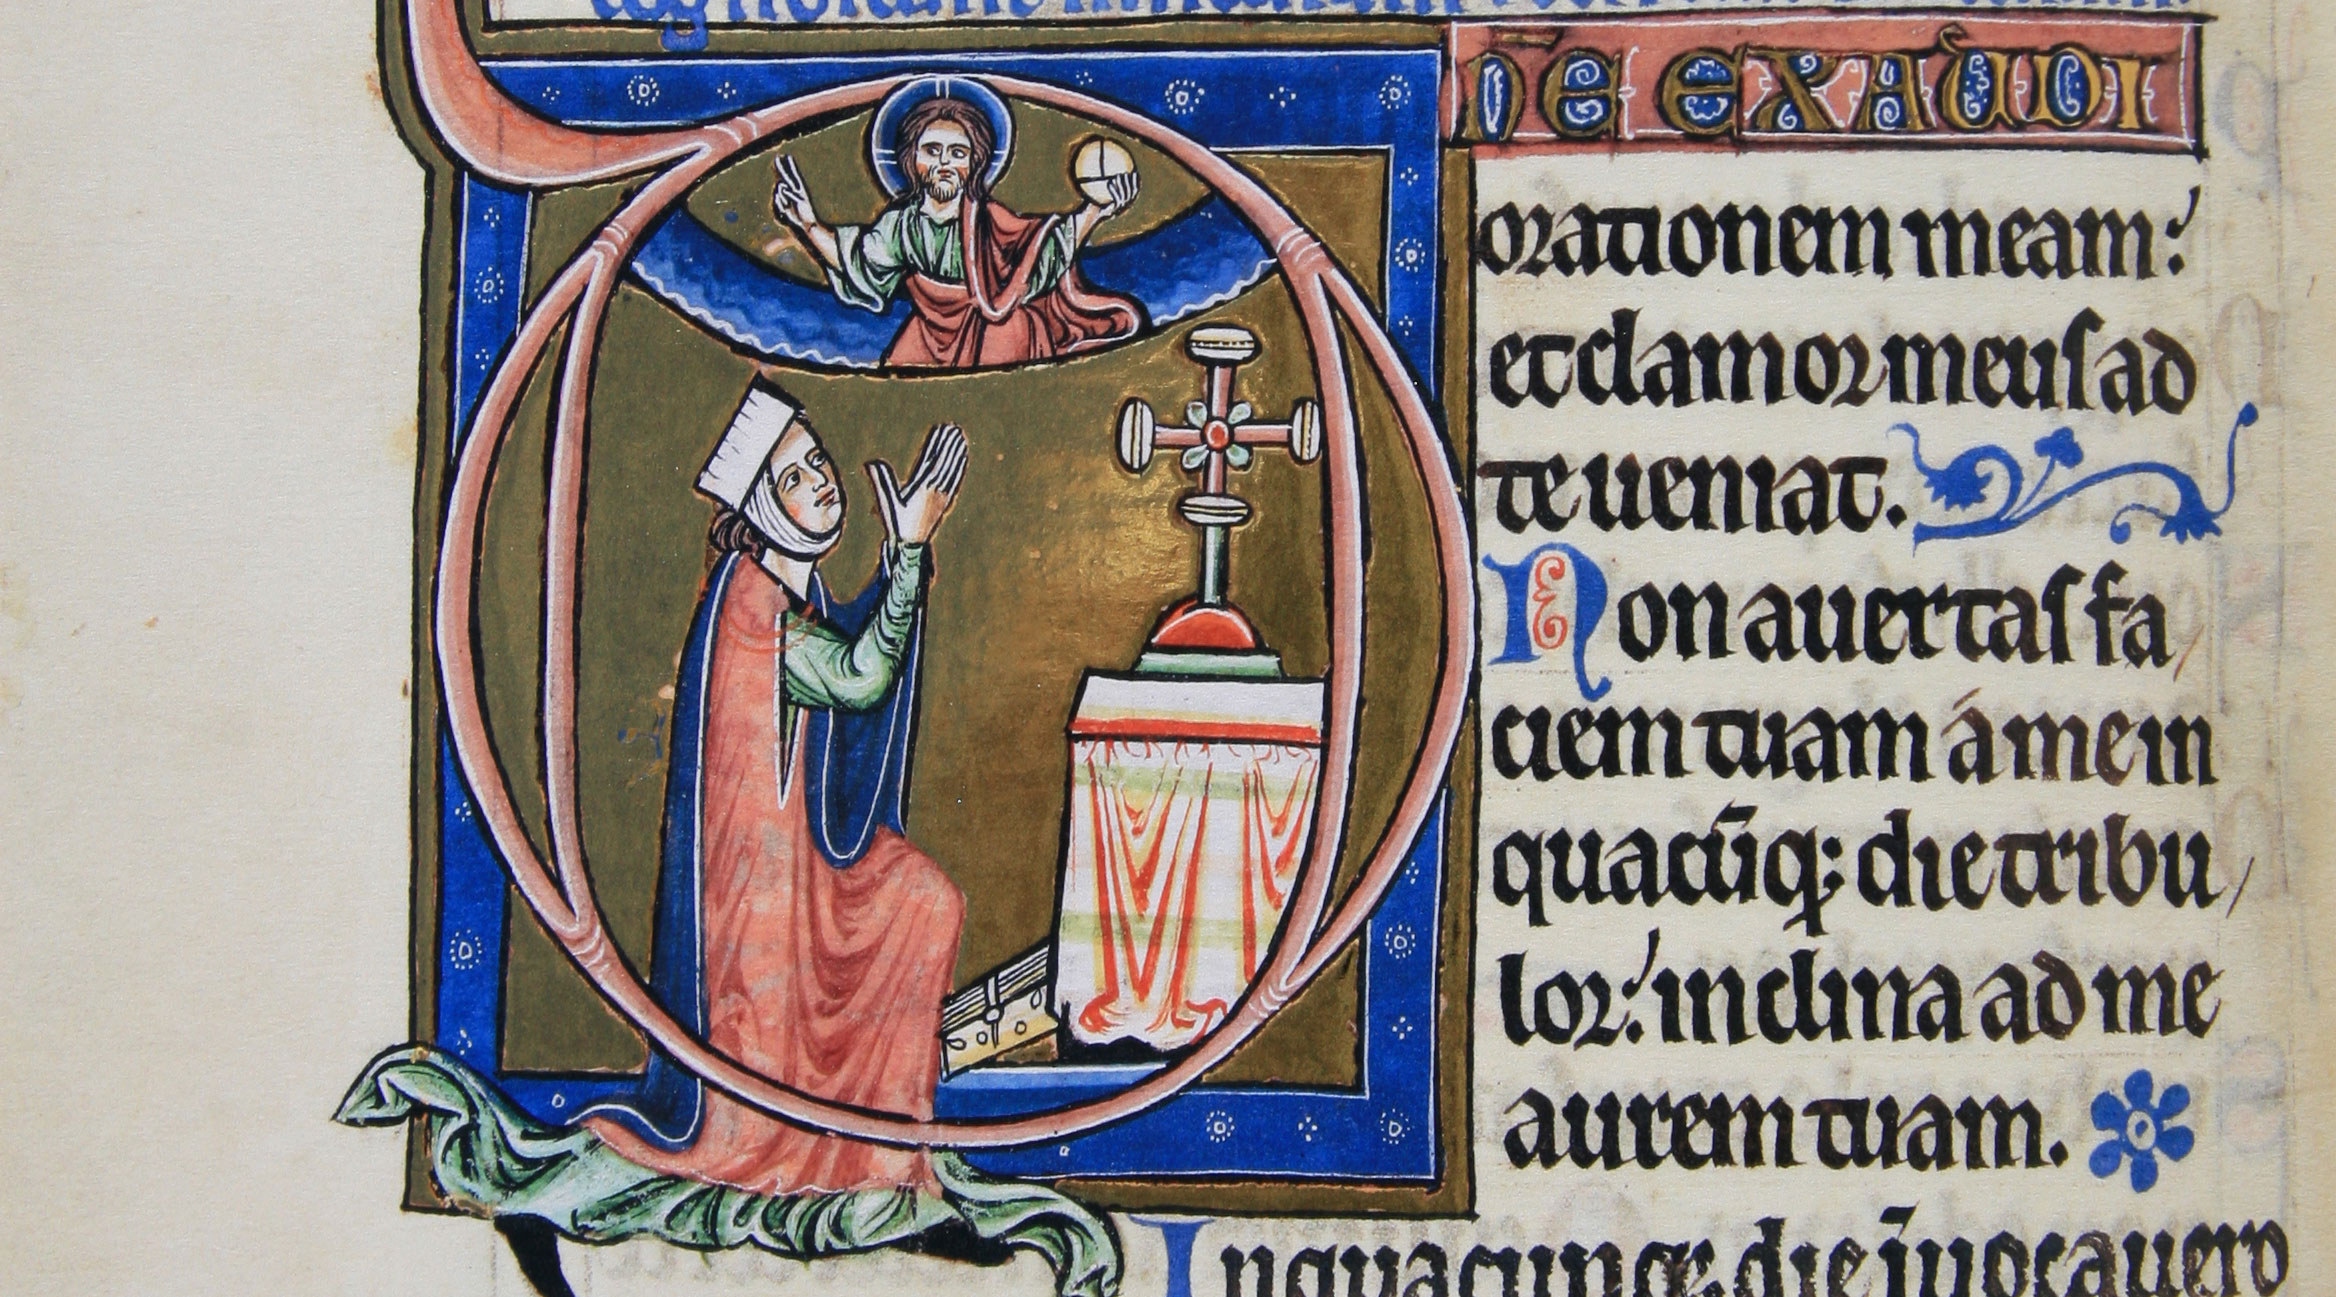 DN̄E EXAUDI
orationem meam:
et clamor meus ad
te ueniat.
Non auertas fa
ciem tuam á me in
quacūq; die tribu
lor: inclina ad me
aurem tuam.
In quacunq; die īuocauero